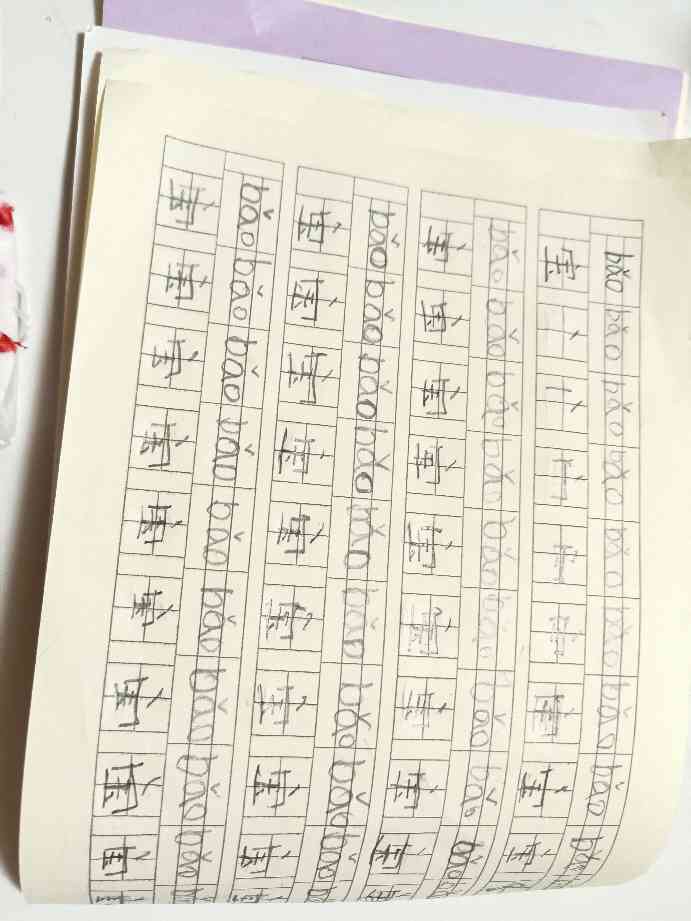 bǎo bǎo bǎo bǎo bǎo bǎo bǎo bǎo bǎo
宝 宝 宝 宝
bǎo bǎo bǎo bǎo bǎo bǎo bǎo bǎo bǎo
宝 宝 宝 宝 宝 宝 宝 宝 宝
bǎo bǎo bǎo bǎo bǎo bǎo bǎo bǎo bǎo
宝 宝 宝 宝 宝 宝 宝 宝 宝
bǎo bǎo bǎo bǎo bǎo bǎo bǎo bǎo bǎo
宝 宝 宝 宝 宝 宝 宝 宝 宝